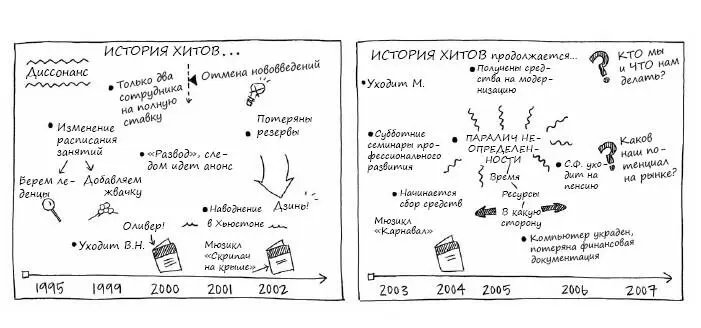 ИСТОРИЯ ХИТОВ...
Диссонанс
Только два
сотрудника
на полную
ставку
Отмена нововведений
Изменение
расписания
занятий
Потеряны
резервы
«Развод», сле-
дом идет анонс
Берем ле-
денцы
Добавляем
жвачку
Наводнение
в Хьюстоне
Дзинь!
Оливер!
Уходит В.Н.
Мюзикл
«Скрипач
на крыше»
1995 1999 2000 2001 2002
ИСТОРИЯ ХИТОВ продолжается...
Уходит М.
Получены сред-
ства на модер-
низацию
КТО мы
и ЧТО нам
делать?
Субботние
семинары про-
фессионального
развития
ПАРАЛИЧ НЕ-
ОПРЕДЕЛЕН-
НОСТИ
Время
Ресурсы
В какую
сторону
С.Ф. ухо-
дит на
пенсию
Каков
наш по-
тенциал
на рынке?
Начинается
сбор средств
Мюзикл
«Карнавал»
Компьютер украден,
потеряна финансовая
документация
2003 2004 2005 2006 2007